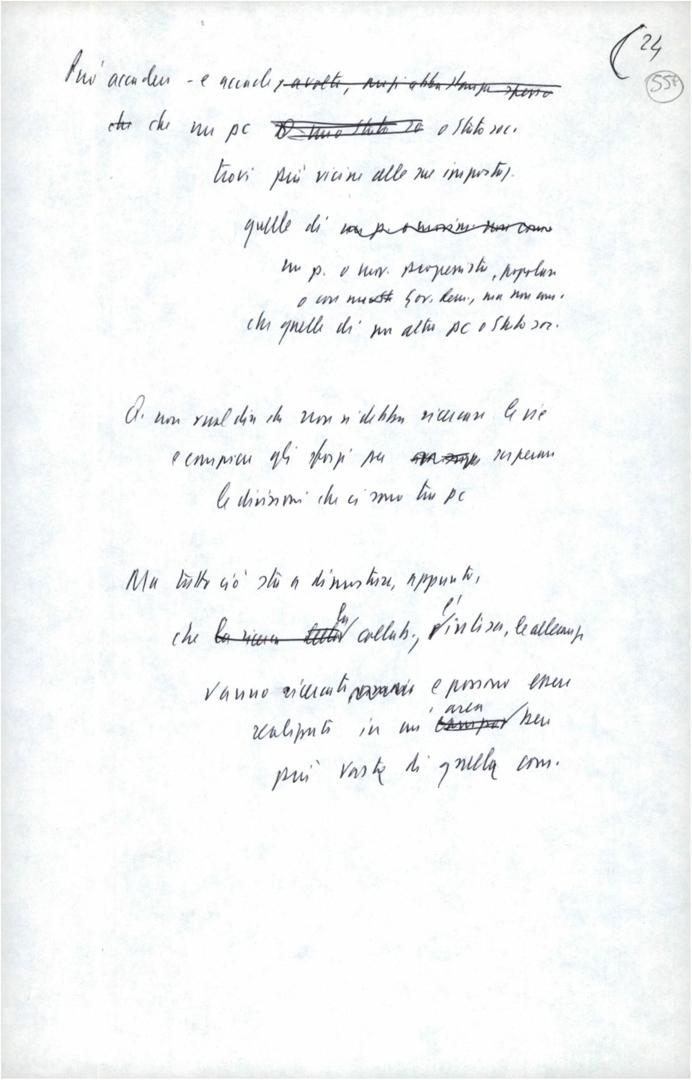 24
55
Può accadere - e accade, a volte, anzi abbastanza spesso
che che un pc o Stato soc.
trovi più vicine alle sue impostaz.
quelle di
un p. o mov. progressista, popolare
o con Gov. dem., ma non com.
che quelle di un altro pc o Stato soc.
Q. non vuol dire che non si debba ricercare le vie
e compiere gli sforzi per superare
le divisioni che ci sono tra pc
Ma tutto ciò sta a dimostrare, appunto,
che la ricerca della la collab., l'intesa, le alleanze
vanno ricercati e possono essere
realizzati in un' campo area ben
più vasta di quella com.